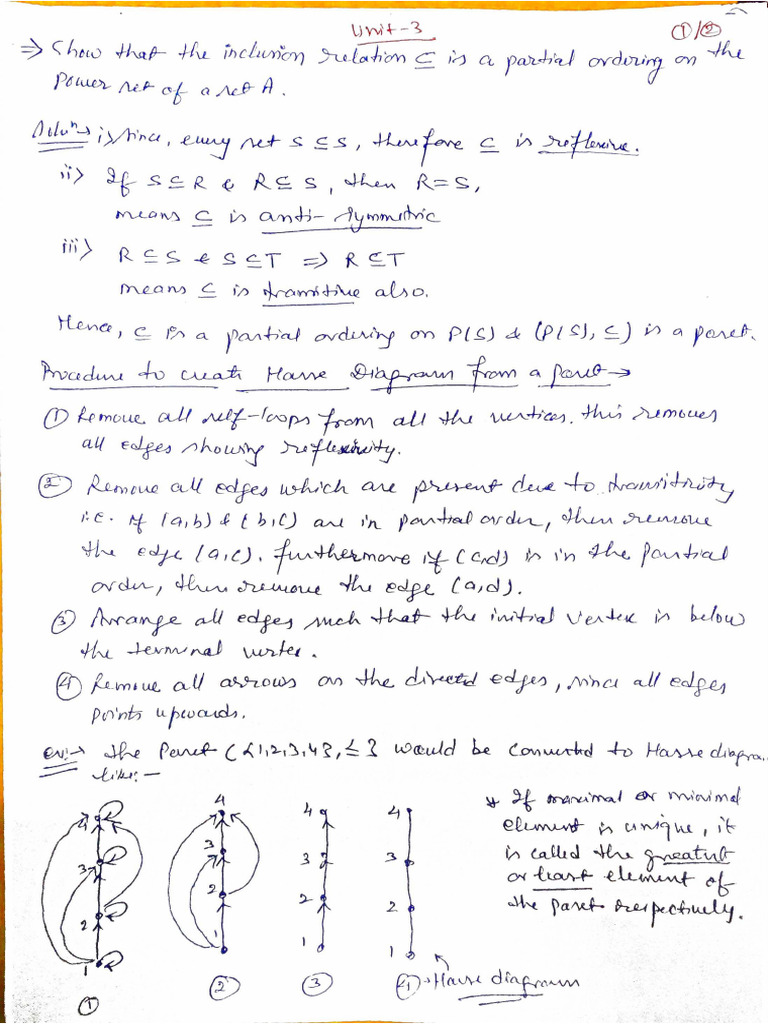 Unit-3
①/②
⇒ Show that the inclusion relation ⊆ is a partial ordering on the
Power set of a set A.
Soluⁿ→ i> Since, every set S ⊆ S, therefore ⊆ is reflexive.
ii> If S ⊆ R & R ⊆ S, then R = S,
means ⊆ is anti-symmetric
iii> R ⊆ S & S ⊆ T ⇒ R ⊆ T
means ⊆ is transitive also.
Hence, ⊆ is a partial ordering on P(S) & (P(S), ⊆) is a poset.
Procedure to create Hasse Diagram from a poset →
① Remove all self-loops from all the vertices. this removes
all edges showing reflexivity.
② Remove all edges which are present due to transitivity
i.e. if (a,b) & (b,c) are in partial order, then remove
the edge (a,c). furthermore if (c,d) is in the partial
order, then remove the edge (a,d).
③ Arrange all edges such that the initial vertex is below
the terminal vertex.
④ Remove all arrows on the directed edges, since all edges
points upwards.
Ex:→ the Poset ({1,2,3,4}, ≤ } would be converted to Hasse diagram
like:-
* If maximal or minimal
element is unique, it
is called the greatest
or least element of
the poset respectively.
4 3 2 1
4 3 2 1
4 3 2 1
4 3 2 1
① ② ③ ④→Hasse diagram